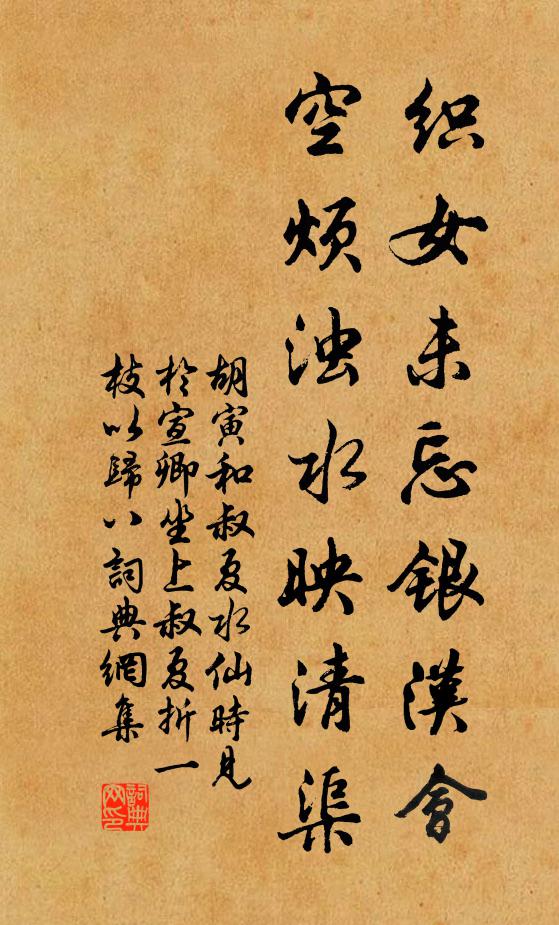 织女未忘银漢會
空烦浊水映清渠
胡寅和叔夏水仙時見
於宣卿坐上叔夏折一
枝以歸八詞典網集
詞典网印